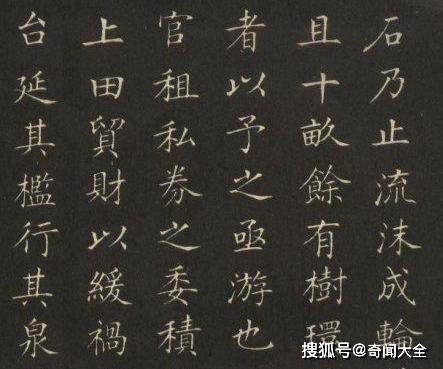 石乃止流沫成輪
且十畝餘有樹環
者以予之亟游也
官租私券之委積
上田貿財以緩禍
台延其檻行其泉
搜狐号@奇闻大全